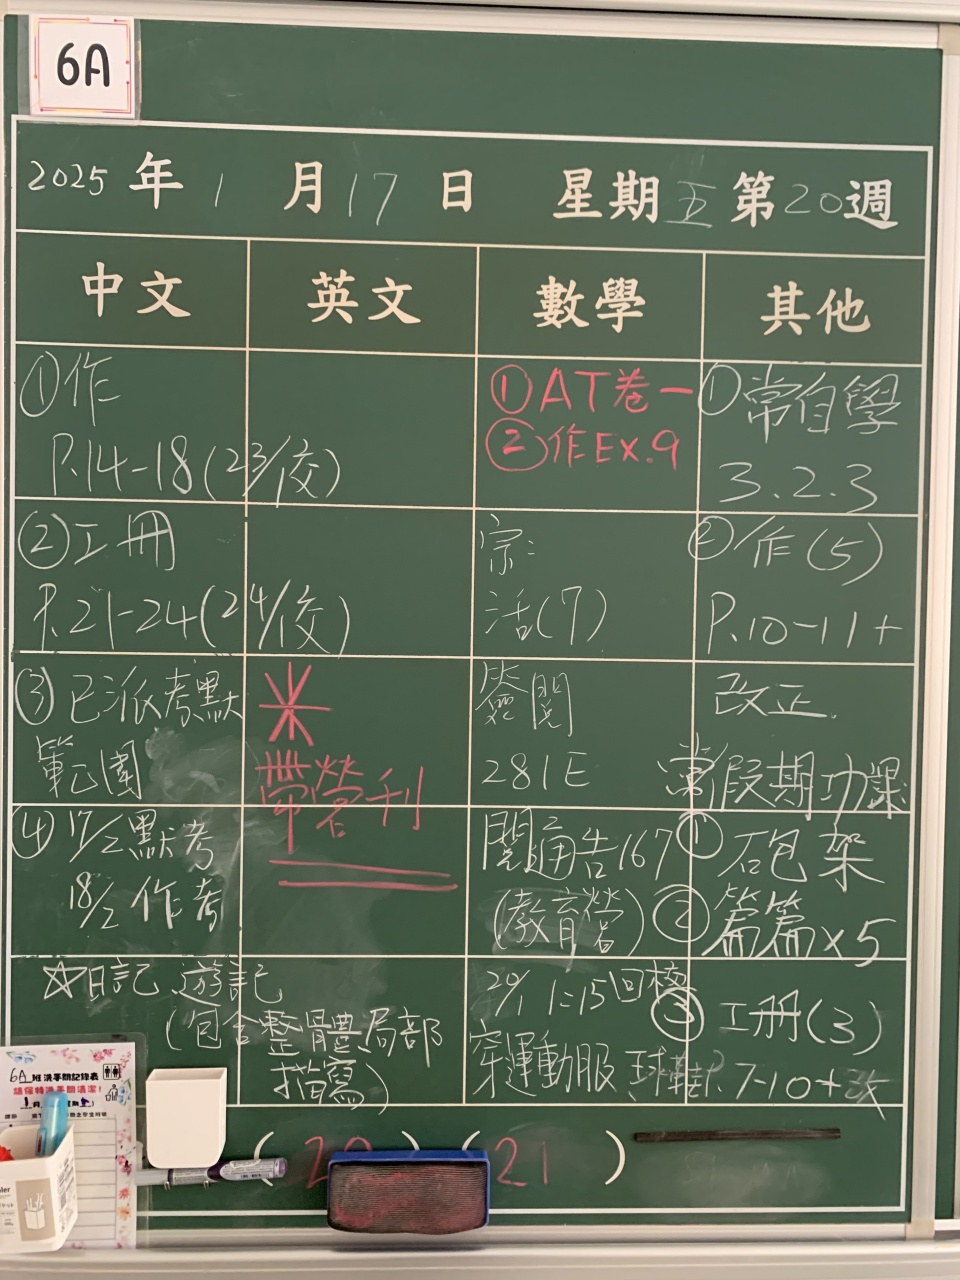 6A
2025年1月17日 星期五第20週
中文 英文 數學 其他
①作
P.14-18(23/1交)
②工冊
P.21-24(24/1交)
③已派考默
範圍
④17/2默考
18/2作考
☆日記 遊記
(包含整體局部
描寫)
*
帶營刊
①AT卷一
②作Ex.9
宗:
活(7)
簽閱
281E
閱通告167
(教育營)
20/1 1:15回校
穿運動服 球鞋
①常自學
3.2.3
②作(5)
P.10-11+
改正
常假期功課
①砲架
②篇篇x5
③工册(3)
P7-10+改
(20)(21)
6A班洗手間記錄表
請保持洗手間清潔!